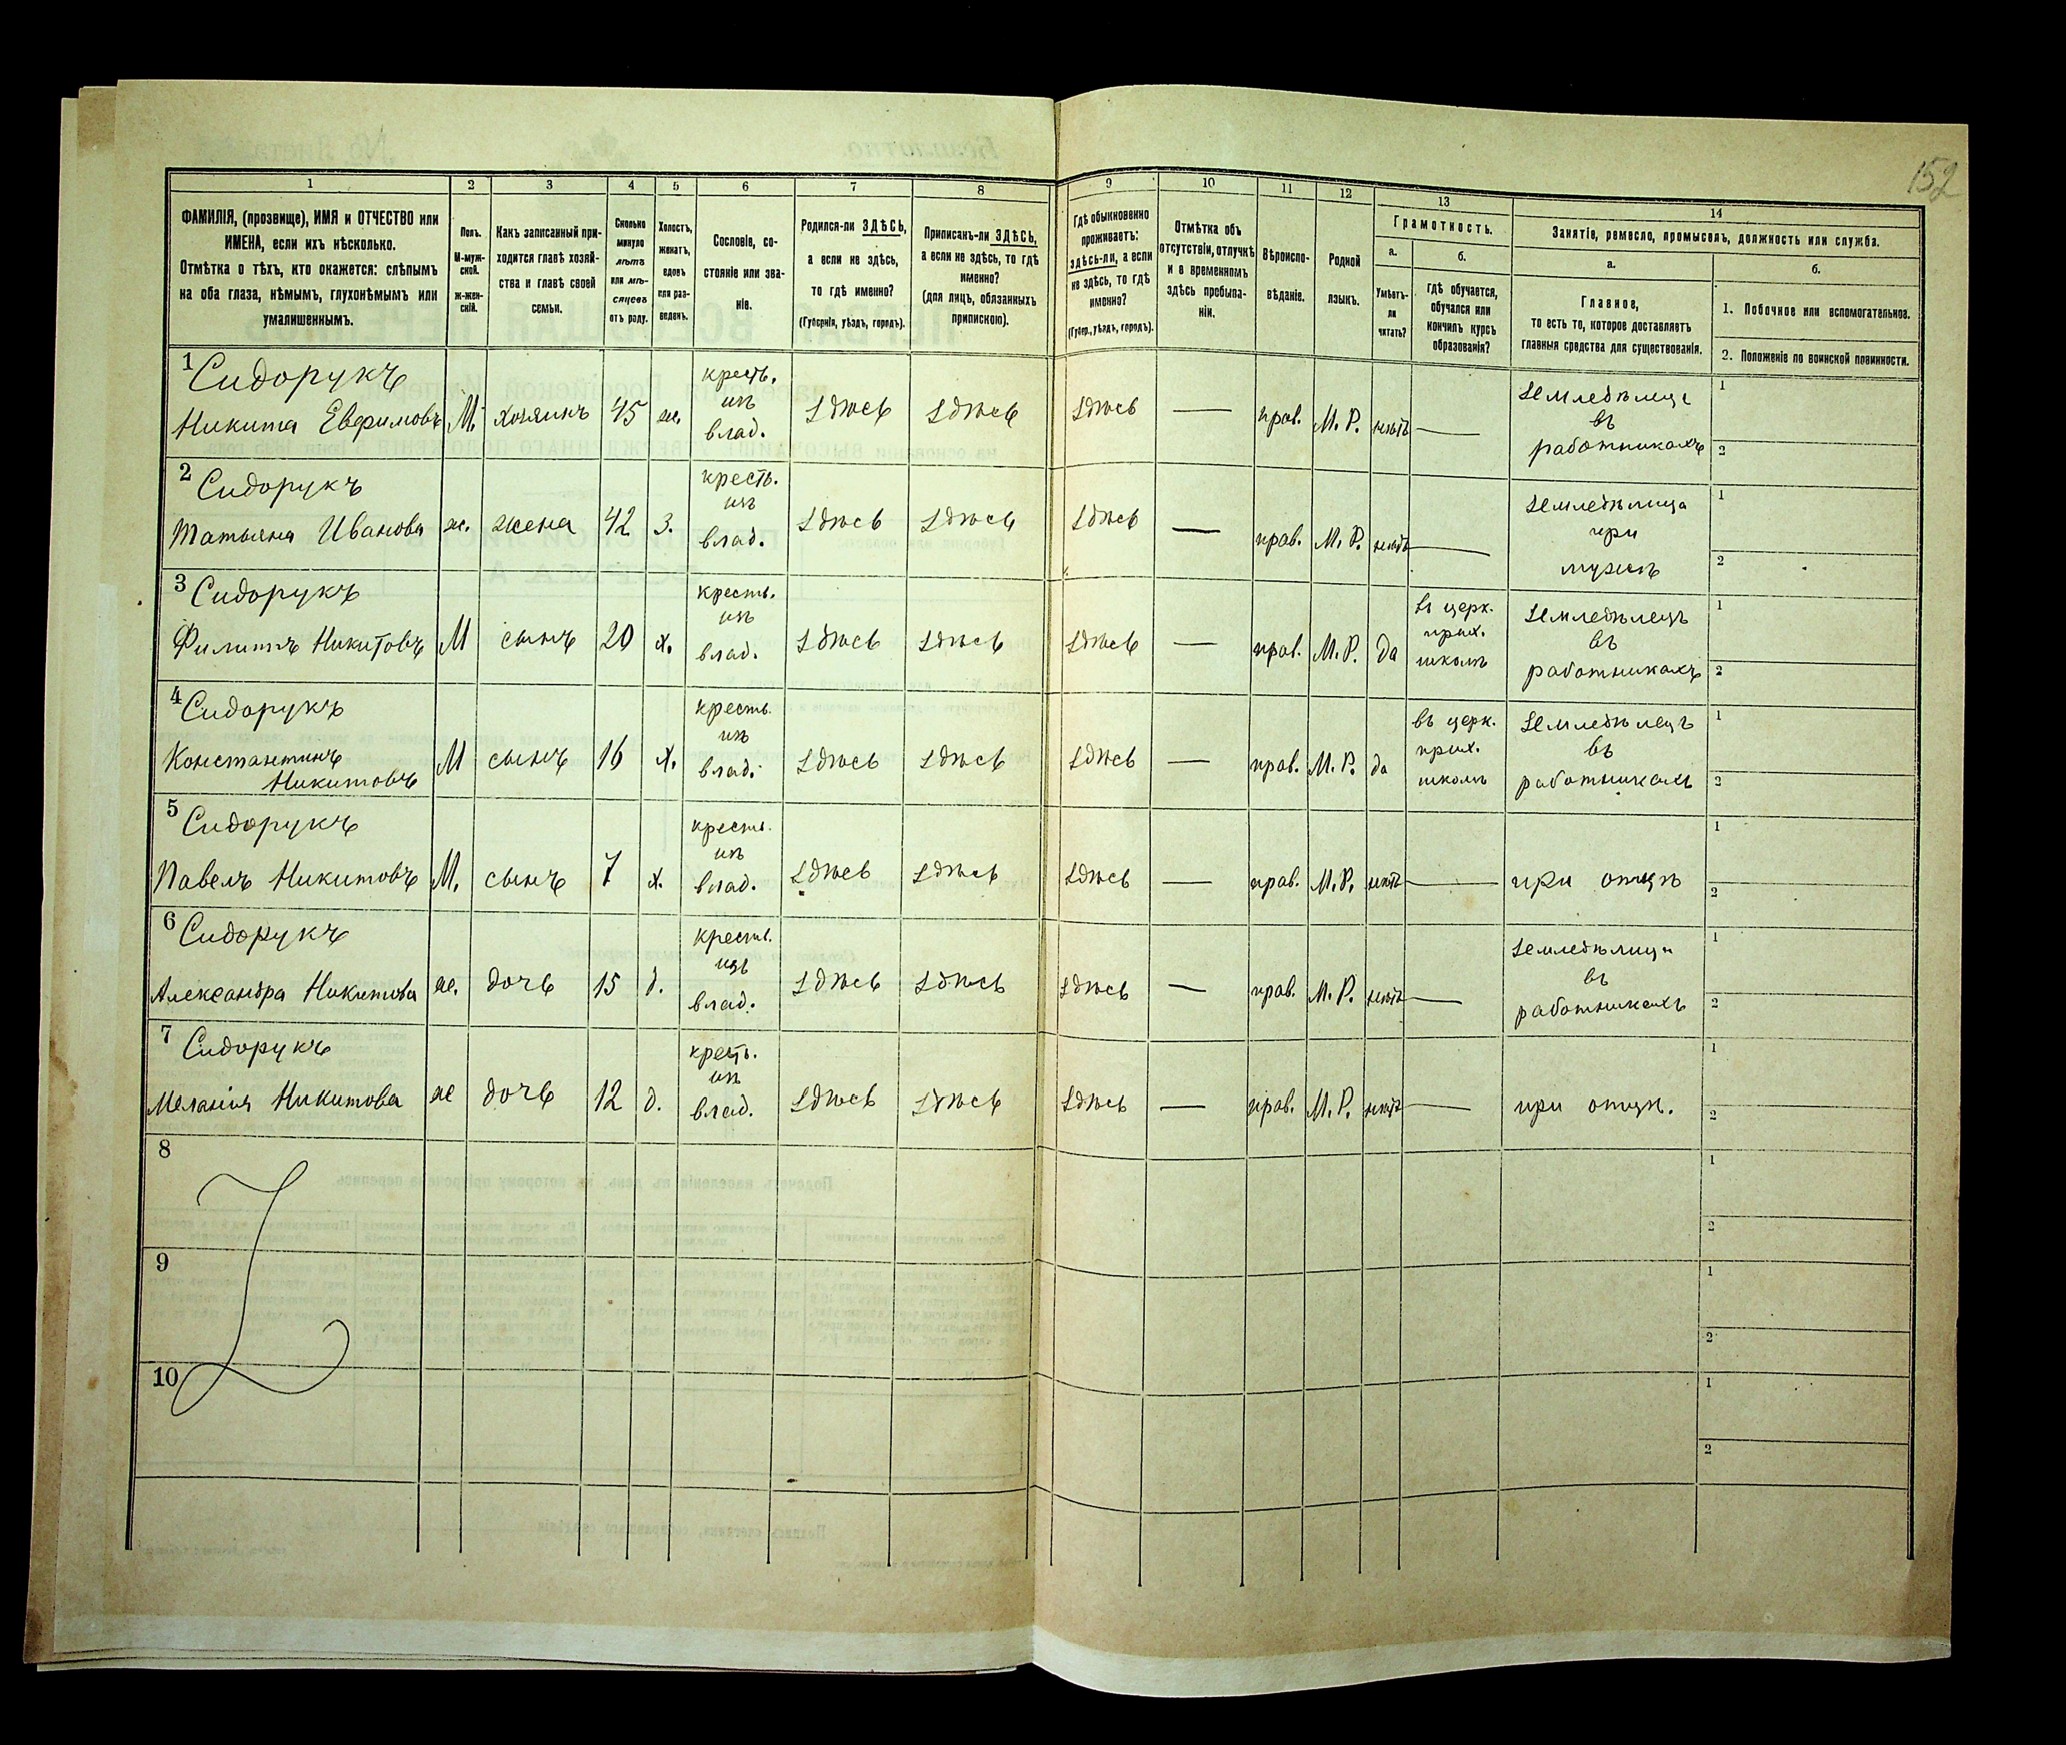 152
1 2 3 4 5 6 7 8 9 10 11 12 13 14
ФАМИЛІЯ, (прозвище), ИМЯ и ОТЧЕСТВО или
ИМЕНА, если ихъ нѣсколько.
Отмѣтка о тѣхъ, кто окажется: слѣпымъ
на оба глаза, нѣмымъ, глухонѣмымъ или
умалишеннымъ.
Полъ.
М-муж-
ской.
ж-жен-
скій.
Какъ записанный при-
ходится главѣ хозяй-
ства и главѣ своей
семьи.
Сколько
минуло
лѣтъ
или мѣ-
сяцевъ
отъ роду.
Холостъ,
женатъ,
вдовъ
или раз-
веденъ.
Сословіе, со-
стояніе или зва-
ніе.
Родился-ли ЗДѢСЬ,
а если не здѣсь,
то гдѣ именно?
(Губернія, уѣздъ, городъ).
Приписанъ-ли ЗДѢСЬ,
а если не здѣсь, то гдѣ
именно?
(для лицъ, обязанныхъ
припискою).
Гдѣ обыкновенно
проживаетъ:
здѣсь-ли, а если
не здѣсь, то гдѣ
именно?
(Губер., уѣздъ, городъ).
Отмѣтка объ
отсутствіи, отлучкѣ
и о временномъ
здѣсь пребыва-
ніи.
Вѣроиспо-
вѣданіе.
Родной
языкъ.
Грамотность.
а.
Умѣетъ-
ли
читать?
б.
гдѣ обучается,
обучался или
кончилъ курсъ
образованія?
Занятіе, ремесло, промыселъ, должность или служба.
а.
Главное,
то есть то, которое доставляетъ
главныя средства для существованія.
б.
1. Побочное или вспомогательное.
2. Положеніе по воинской повинности.
1 Сидорукъ
Никита Евфимовъ М. хозяинъ 45 ж. кресть. изъ влад. здѣсь здѣсь здѣсь — прав. М. Р. нѣтъ — земледѣлецъ въ работникахъ 1 2
2 Сидорукъ
Татьяна Иванова ж. жена 42 з. кресть. изъ влад. здѣсь здѣсь здѣсь — прав. М. Р. нѣтъ — земледѣлица при мужѣ 1 2
3 Сидорукъ
Филиппъ Никитовъ М сынъ 20 х. кресть. изъ влад. здѣсь здѣсь здѣсь — прав. М. Р. да въ церк. прих. школѣ земледѣлецъ въ работникахъ 1 2
4 Сидорукъ
Константинъ
Никитовъ М сынъ 16 х. кресть. изъ влад. здѣсь здѣсь здѣсь — прав. М. Р. да въ церк. прих. школѣ земледѣлецъ въ работникахъ 1 2
5 Сидорукъ
Павелъ Никитовъ М. сынъ 7 х. кресть. изъ влад. здѣсь здѣсь здѣсь — прав. М. Р. нѣтъ — при отцѣ 1 2
6 Сидорукъ
Александра Никитова ж. дочь 15 д. кресть. изъ влад. здѣсь здѣсь здѣсь — прав. М. Р. нѣтъ — земледѣлица въ работникахъ 1 2
7 Сидорукъ
Меланія Никитова ж дочь 12 д. кресть. изъ влад. здѣсь здѣсь здѣсь — прав. М. Р. нѣтъ — при отцѣ. 1 2
8 1 2
9 1 2
10 1 2